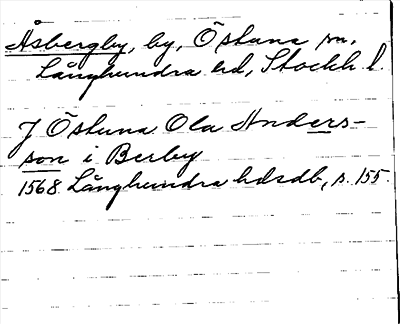 Åsbergby, by, Östuna sn.
Långhundra hd, Stockh. l.
J Östuna Ola Anders-
son i Berby
1568 Långhundra hdsdb, s. 155.